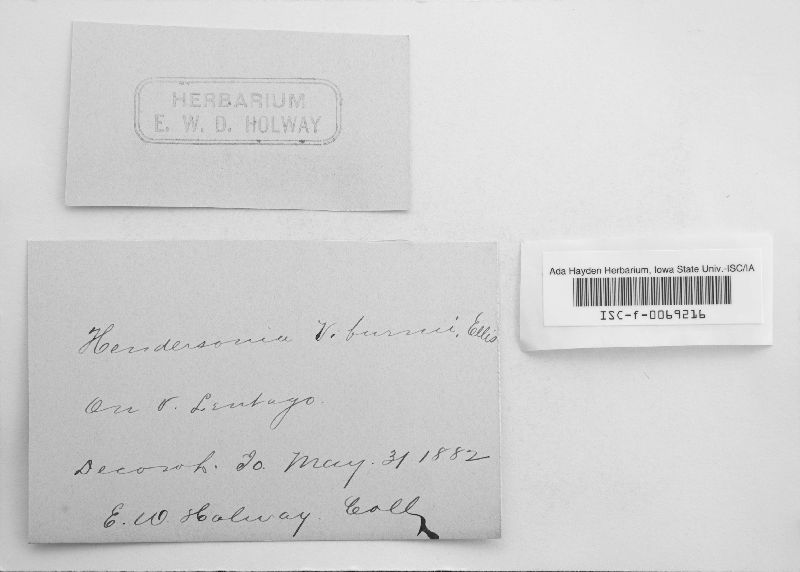 HERBARIUM
E. W. D. HOLWAY
Hendersonia Viburni, Ellis
On V. Lentago.
Decorah. Io. May. 31 1882
E. W. Holway. Coll
Ada Hayden Herbarium, Iowa State Univ.-ISC/IA
ISC-f-0069216